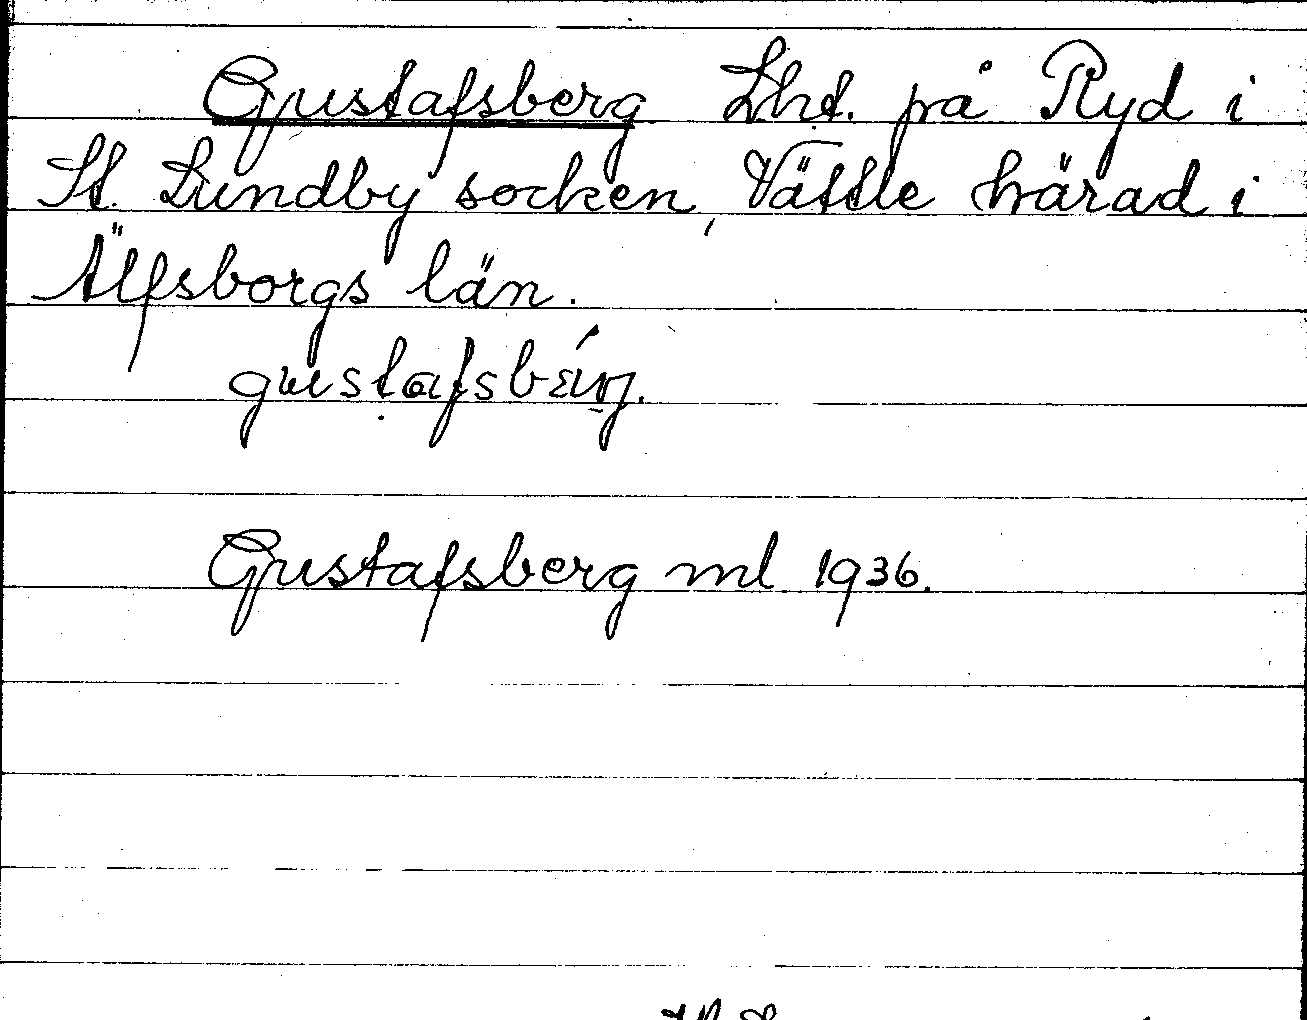 Gustafsberg Lht. på Ryd i
St. Lundby socken, Vättle härad i
Älfsborgs län.
Gustafsberg ml. 1936.